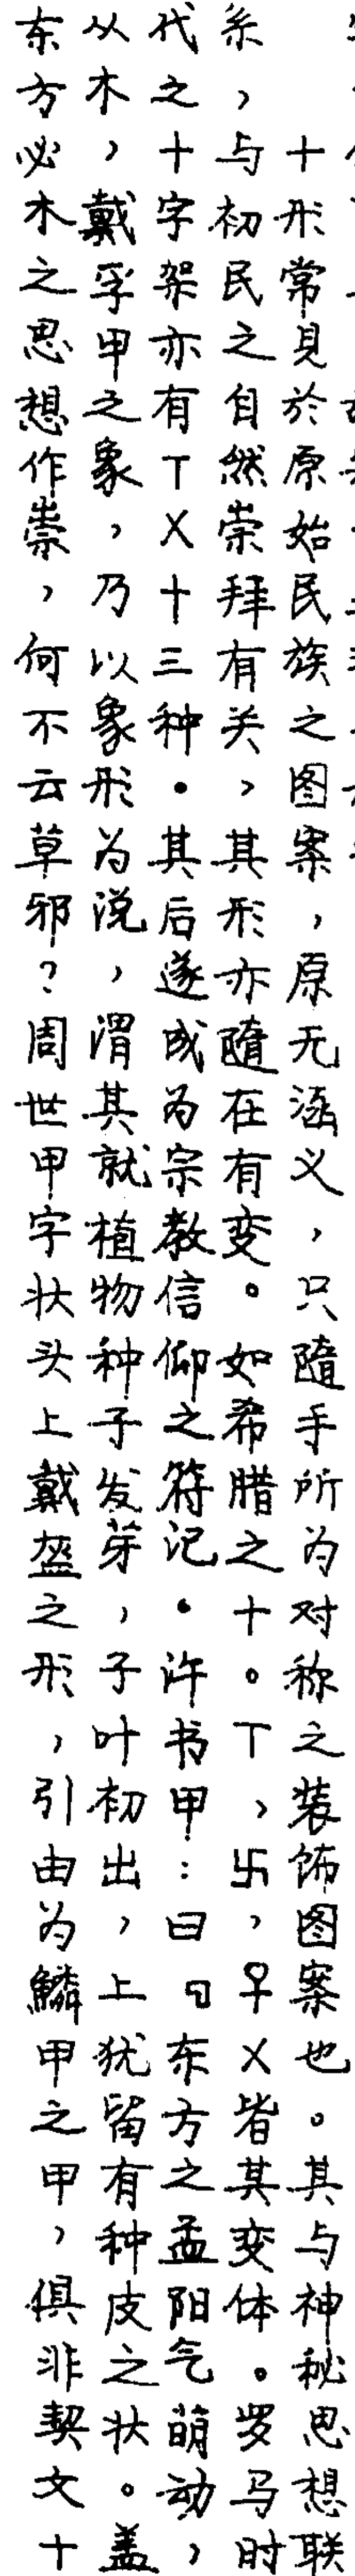 十形常見於原始民族之图案，原无涵义，只隨手所为对称之装饰图案也。其与神秘思想联
系，与初民之自然崇拜有关，其形亦隨在有变。如希腊之十。丅，卐，♀X皆其变体。罗马时
代之十字架亦有丅X十三种．其后遂成为宗教信仰之符记．许书甲：曰「东方之孟阳气萌动，
从木，戴孚甲之象，乃以象形为说，渭其就植物种子发芽，子叶初出，上犹留有种皮之状。盖
东方必木之思想作祟，何不云草邪？周世甲字状头上戴盔之形，引由为鱗甲之甲，俱非契文十